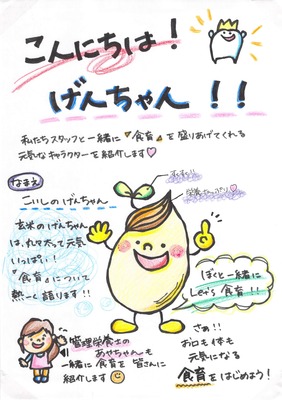 こんにちは！
げんちゃん！！
私たちスタッフと一緒に『食育』を盛りあげてくれる
元気なキャラクターを紹介します♡
なまえ
こいしのげんちゃん
玄米のげんちゃん
は、丸々太って元気
いっぱい！
『食育』について
熱〜く語ります！！
栄養たっぷり
ぼくと一緒に
Let's 食育！！
管理栄養士の
あやちゃんも
一緒に食育を皆さんに
紹介します
さぁ！！
お口も体も
元気になる
食育をはじめよう！